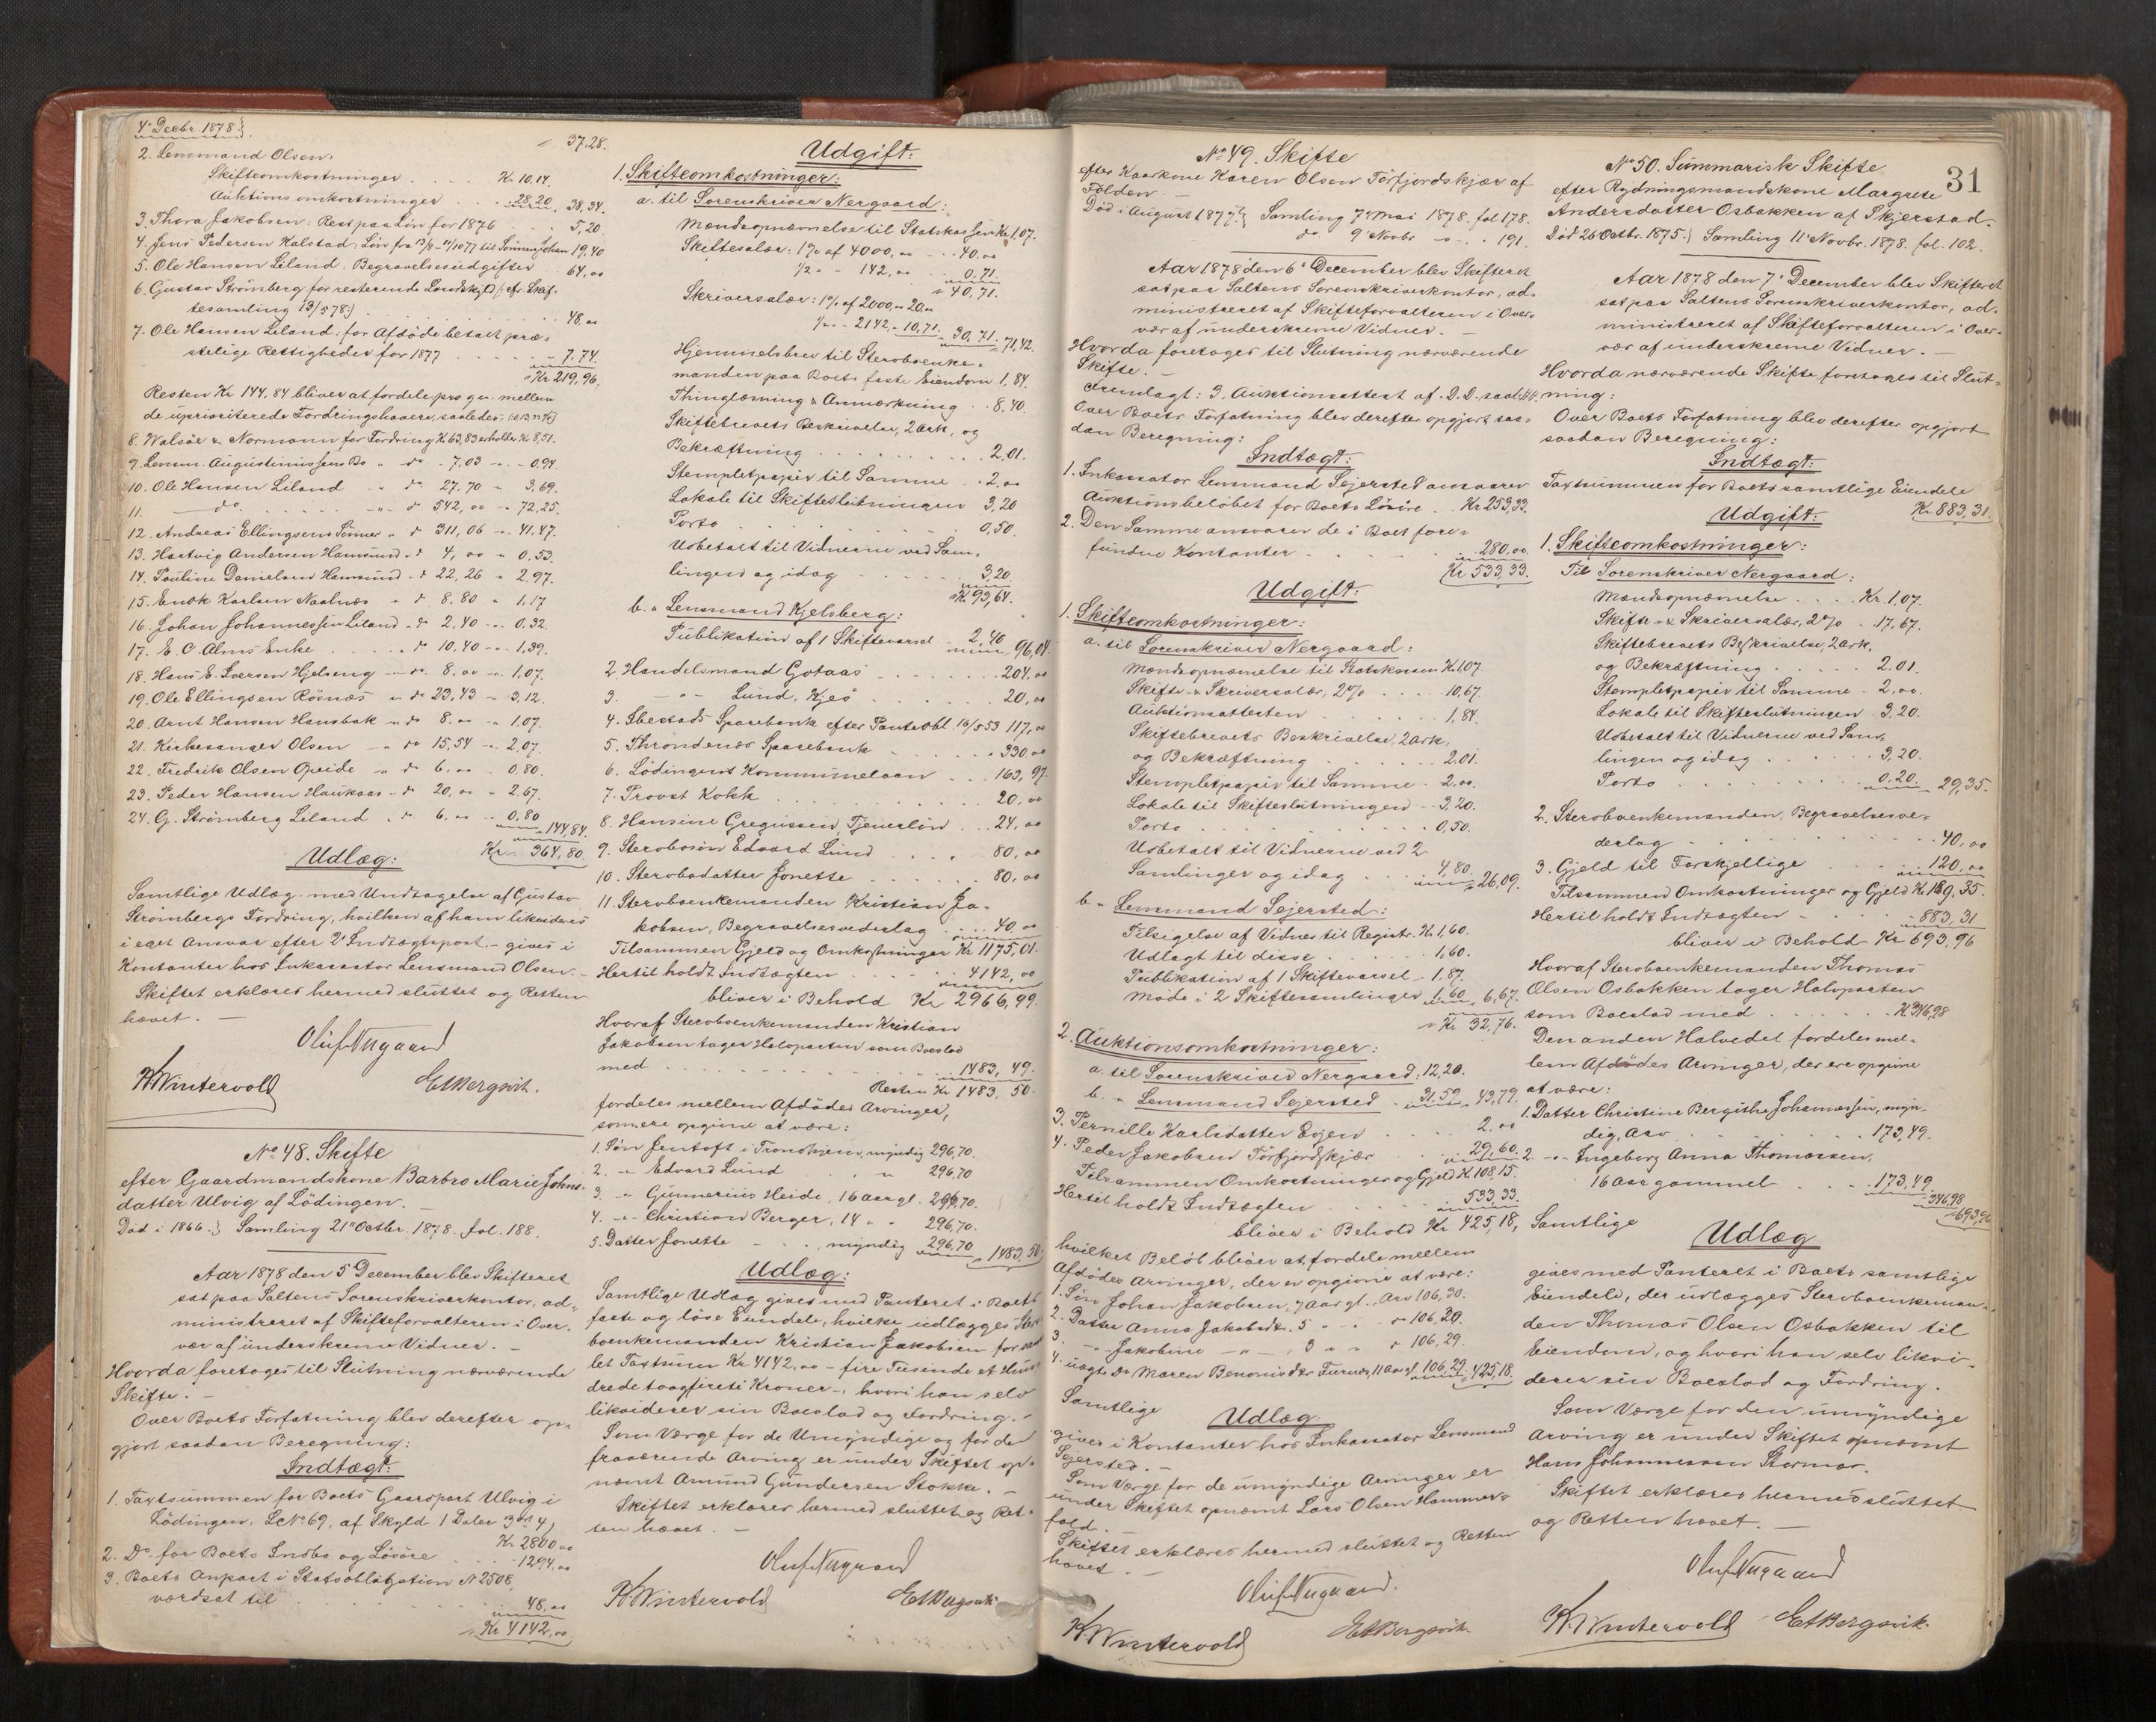 4' Decbr. 1878.}
37.28.
2. Lensmand Olsen:
Skifteomkostninger . . . Kr. 10.14.
Auktionsomkostninger . . 28,20. 38,34.
3. Thora Jakobsen: Rest paa Løn for 1876 5,20
4. Jens Pedersen Kalstad: Løn fra til Sønnen Johan 19,40
5. Ole Hansen Liland: Begravelsesudgifter 64,00
6. Gustav Strømberg for resterende Landskyld /: cfr. Skif-
tesamling 13/5 78:/ . . . 48,00
7. Ole Hansen Liland: for Afdøde betalt præ-
stelige Rettigheder for 1877 . . . 7.74.
Kr 219,96.
Resten Kr 144,84 bliver at fordele pro qv. mellem
de uprioriterede Fordringshavere, saaledes:
8. Walsöe & Normann for Fordring Kr 63,83 erholder Kr 8,51.
9. Lensm. Augustinussens Bo " do - 7,03 - - 0,94.
10. Ole Hansen Liland " do 27,70 " 3,69.
11. do . . . " do 542,00 - 72,25.
12. Andreas Ellingsens Sønner " do 311,06 - 41,47.
13. Hartvig Andersen Hamsund - d 4,00 - 0,53.
14. Pauline Danielsen Hamsund - d 22,26 - 2,97.
15. Enok Karlsen Naalnæs " d 8,80 " 1,17
16. Johan Johannessen Liland - d 2,40 - 0,32.
17. E. C. Alms Enke . . . d 10,40 - 1,39.
18. Hans E. Iversen Hjelseng - do 8,00 - 1,07.
19. Ole Ellingsen Rösnæs " do 23,43 - 3,12.
20. Arnt Hansen Hansbak " do 8,00 - 1,07.
21. Kirkesanger Olsen " do 15,54 - 2,07.
22. Fredrik Olsen Opeide " d 6,00 - 0,80.
23. Peder Hansen Haukaas - d 20,00 - 2,67.
24. G. Strømberg Liland " d 6,00 - 0,80
144,84.
Kr 364,80.
Udlæg:
Samtlige Udlæg - med Undtagelse af Gustav
Strømbergs Fordring, hvilken af ham likvideres
i eget Ansvar efter 2' Indtægtspost, - gives i
Kontanter hos Inkassator Lensmand Olsen. -
Skiftet erklæres hermed sluttet og Retten
hævet. -
Oluf Nergaard
K. Wintervold E. Bergsvik.
No 48. Skifte
efter Gaardmandskone Barbro Marie Johns-
datter Ulvig af Lödingen. -
Död i 1866.} Samling 21' Octbr. 1878. fol. 188.
Aar 1878 den 5 December blev Skifteret
sat paa Saltens Sorenskriverkontor, ad-
ministreret af Skifteforvalteren i Over-
vær af underskrevne Vidner. -
Hvorda foretoges til Slutning nærværende
Skifte. -
Over Boets Forfatning blev derefter op-
gjort saadan Beregning:
Indtægt:
1. Taxtsummen for Boets Gaardpart Ulvig i
Lödingen, L No 69, af Skyld 1 Daler 3 ort 4
Kr 2800,00
2. Do for Boets Indbo og Lösöre . . . 1294,00
3. Boets Anpart i Statsobligation No 2508,
værdsat til . . . 48,00
Kr 4142,00.
Udgift:
1. Skifteomkostninger:
a. til Sorenskriver Nergaard:
Mandsopnævnelse til Statskassen Kr 1,07.
Skiftesalær: 1% af 4000,00 . . 40,00
1/2 " - 142,00 . . 0,71.
40,71.
Skriversalær: 1% af 2000,00 20,00
1/2 " - 2142, - 10,71. 30,71. 71,42.
Hjemmelsbrev til Sterboenke-
manden paa Boets faste Eiendom 1,84.
Thinglæsning & Anmærkning . . 8,40.
Skiftebrevets Beskrivelse, 2 Ark, og
Bekræftning . . . 2,01.
Stempletpapir til Samme . . 2,00
Lokale til Skifteslutningen 3,20
Porto . . . 0,50.
Udbetalt til Vidnerne ved Sam-
lingen og idag . . . 3,20
Kr 93,64.
b. " Lensmand Kjelsberg:
Publikation af 1 Skiftevarsel - 2,40 96,04.
2. Handelsmand Gotaas . . . 204,00
3. - " - Lund, Kjeö . . . 20,00
4. Ibestads Sparebank efter Panteobl. 16/5 53 117,00
5. Throndenæs Sparebank . . . 330,00
6. Lödingens Kommunelaan . . . 163,97.
7. Provst Kokk . . . 20,00
8. Hansine Gregussen, Tjenerlön . . . 24,00
9. Sterbosön Edvard Lund . . . 80,00
10. Sterbodatter Jonette . . . 80,00
11. Sterboenkemanden Kristian Ja-
kobsen, Begravelsesvederlag . . . 40,00
Tilsammen Gjeld og Omkostninger Kr 1175,01.
Hertil holdt Indtægten . . . 4142,00
bliver i Behold Kr 2966,99.
Hvoraf Sterboenkemanden Kristian
Jakobsen tager Halvparten som Boeslod
med . . . 1483,49.
Resten Kr 1483,50.
fordeles mellem Afdödes Arvinger,
som ere opgivne at være:
1. Sön Jentoft i Tronhjem, myndig 296,70.
2. - " Edvard Lund " " 296,70
3. " Gunnerius Heide, 16 Aar gl. 296,70.
4. - " Christian Berger, 14 " " 296,70.
5. Datter Jonette - " , myndig 296,70 1483,50.
Udlæg:
Samtlige Udlæg gives med Panteret i Boets
faste og löse Eiendele, hvilke udlægges Ster-
boenkemanden Kristian Jakobsen for sam-
let Taxtsum Kr 4142,00 - fire Tusende et Hun-
drede toogfireti Kroner -, hvori han selv
likviderer sin Boeslod og Fordring. -
Som Værge for de Umyndige og for den
fraværende Arving er under Skiftet op-
nævnt Amund Gundersen Stokke. -
Skiftet erklæres hermed sluttet og Ret-
ten hævet. -
Oluf Nergaard
K. Wintervold E. Bergsvik
No 49. Skifte
efter Kaarkone Karen Olsen Törfjordskjær af
Folden. -
Död i August 1877.} Samling 7' Mai 1878. fol 178.
do 9' Novbr - " - " 191.
Aar 1878 den 6' December blev Skifteret
sat paa Saltens Sorenskriverkontor, ad-
ministreret af Skifteforvalteren i Over-
vær af underskrevne Vidner. -
Hvorda foretoges til Slutning nærværende
Skifte. -
Fremlagt: 3, Auktionsattest af D. D.
Over Boets Forfatning blev derefter opgjort saa-
dan Beregning:
Indtægt:
1. Inkassator Lensmand Sejersted ansvarer
Auktionsbelöbet for Boets Lösöre . Kr 253,33.
2. Den Samme ansvarer de i Boet fore-
fundne Kontanter . . . 280,00
Kr 533,33.
Udgift:
1. Skifteomkostninger:
a. til Sorenskriver Nergaard:
Mandsopnævnelse til Statskassen Kr 1,07.
Skifte- & Skriversalær, 2% . . . 10,67.
Auktionsattesten . . . 1,84.
Skiftebrevets Beskrivelse, 2 Ark,
og Bekræftning . . . 2,01.
Stempletpapir til Samme - 2,00.
Lokale til Skifteslutningen - 3,20.
Porto . . . 0,50.
Udbetalt til Vidnerne ved 2
Samlinger og idag . . . 4,80 26,09.
b. " Lensmand Sejersted:
Tilsigelse af Vidner til Registr. Kr 1,60.
Udlagt til disse . . . 1,60.
Publikation af 1 Skiftevarsel - 1,87.
Möde i 2 Skiftesamlinger 1,60 6,67.
Kr 32,76.
2. Auktionsomkostninger:
a. til Sorenskriver Nergaard: 12,20.
b. " Lensmand Sejersted 31,59 43,79.
3. Pernille Karlsdatter Evjen . . . 2,00
4. Peder Jakobsen Törfjordskjær . . 29,60.
Tilsammen Omkostninger og Gjeld Kr 108,15.
Hertil holdt Indtægten . . . 533,33.
bliver i Behold Kr 425,18,
hvilket Belöb bliver at fordele mellem
Afdödes Arvinger, der er opgivne at være:
1. Sön Johan Jakobsen, 7 Aar gl., Arv 106,30.
2. Datter Anna Jakobsdtr. 5 " " " 106,30.
3. " Jakobine - " - , 3 " " " 106,29.
4. uægte Dr Maren Benonisdtr Furnes, 11 Aar gl. 106,29. 425,18.
Samtlige
Udlæg
gives i Kontanter hos Inkassator Lensmand
Sejersted. -
Som Værge for de umyndige Arvinger er
under Skiftet opnævnt Lars Olsen Hammer-
fald.
Skiftet erklæres hermed sluttet og Retten
hævet. -
Oluf Nergaard.
K. Wintervold E. Bergsvik.
31
No 50. Summarisk Skifte
efter Rydningsmandskone Margrete
Andersdatter Osbakken af Skjerstad. -
Död 26' Octbr. 1875.} Samling 11' Novbr. 1878. fol. 102.
Aar 1878 den 7' December blev Skifteret
sat paa Saltens Sorenskriverkontor, ad-
ministreret af Skifteforvalteren i Over-
vær af underskrevne Vidner. -
Hvorda nærværende Skifte foretoges til Slut-
ning:
Over Boets Forfatning blev derefter opgjort
saadan Beregning:
Indtægt:
Taxtsummen for Boets samtlige Eiendele
Kr. 883,31.
Udgift:
1. Skifteomkostninger:
Til Sorenskriver Nergaard:
Mandsopnævnelse . . . Kr. 1,07.
Skifte- & Skriversalær, 2% . 17,67.
Skiftebrevets Beskrivelse, 2 Ark,
og Bekræftning . . . 2,01.
Stempletpapir til Samme - 2,00.
Lokale til Skifteslutningen 3,20.
Udbetalt til Vidnerne ved Sam-
lingen og idag . . . 3,20.
Porto . . . 0,20. 29,35.
2. Sterboenkemanden, Begravelsesve-
derlag . . . 40,00
3. Gjeld til Forskjellige . . . 120,00
Tilsammen Omkostninger og Gjeld Kr 189,35.
Hertil holdt Indtægten - . . 883,31
bliver i Behold Kr 693,96
Hvoraf Sterboenkemanden Thomas
Olsen Osbakken tager Halvparten
som Boeslod med . . . Kr 346,98
Den anden Halvedel fordeles mel-
lem Afdödes Arvinger, der ere opgivne
at være:
1. Datter Christine Bergithe Johannessen, myn-
dig, Arv . . . 173,49.
2 - " - Ingeborg Anna Thomassen,
16 Aar gammel . . . 173,49.
346,98
693,96
Samtlige
Udlæg
gives med Panteret i Boets samtlige
Eiendele, der udlægges Sterboenkeman-
den Thomas Olsen Osbakken til
Eiendom, og hvori han selv likvi-
derer sin Boeslod og Fordring.
Som Værge for den umyndige
Arving er under Skiftet opnævnt
Hans Johannessen Stormo.
Skiftet erklæres hermed sluttet
og Retten hævet. -
Oluf Nergaard
K. Wintervold E. Bergsvik.